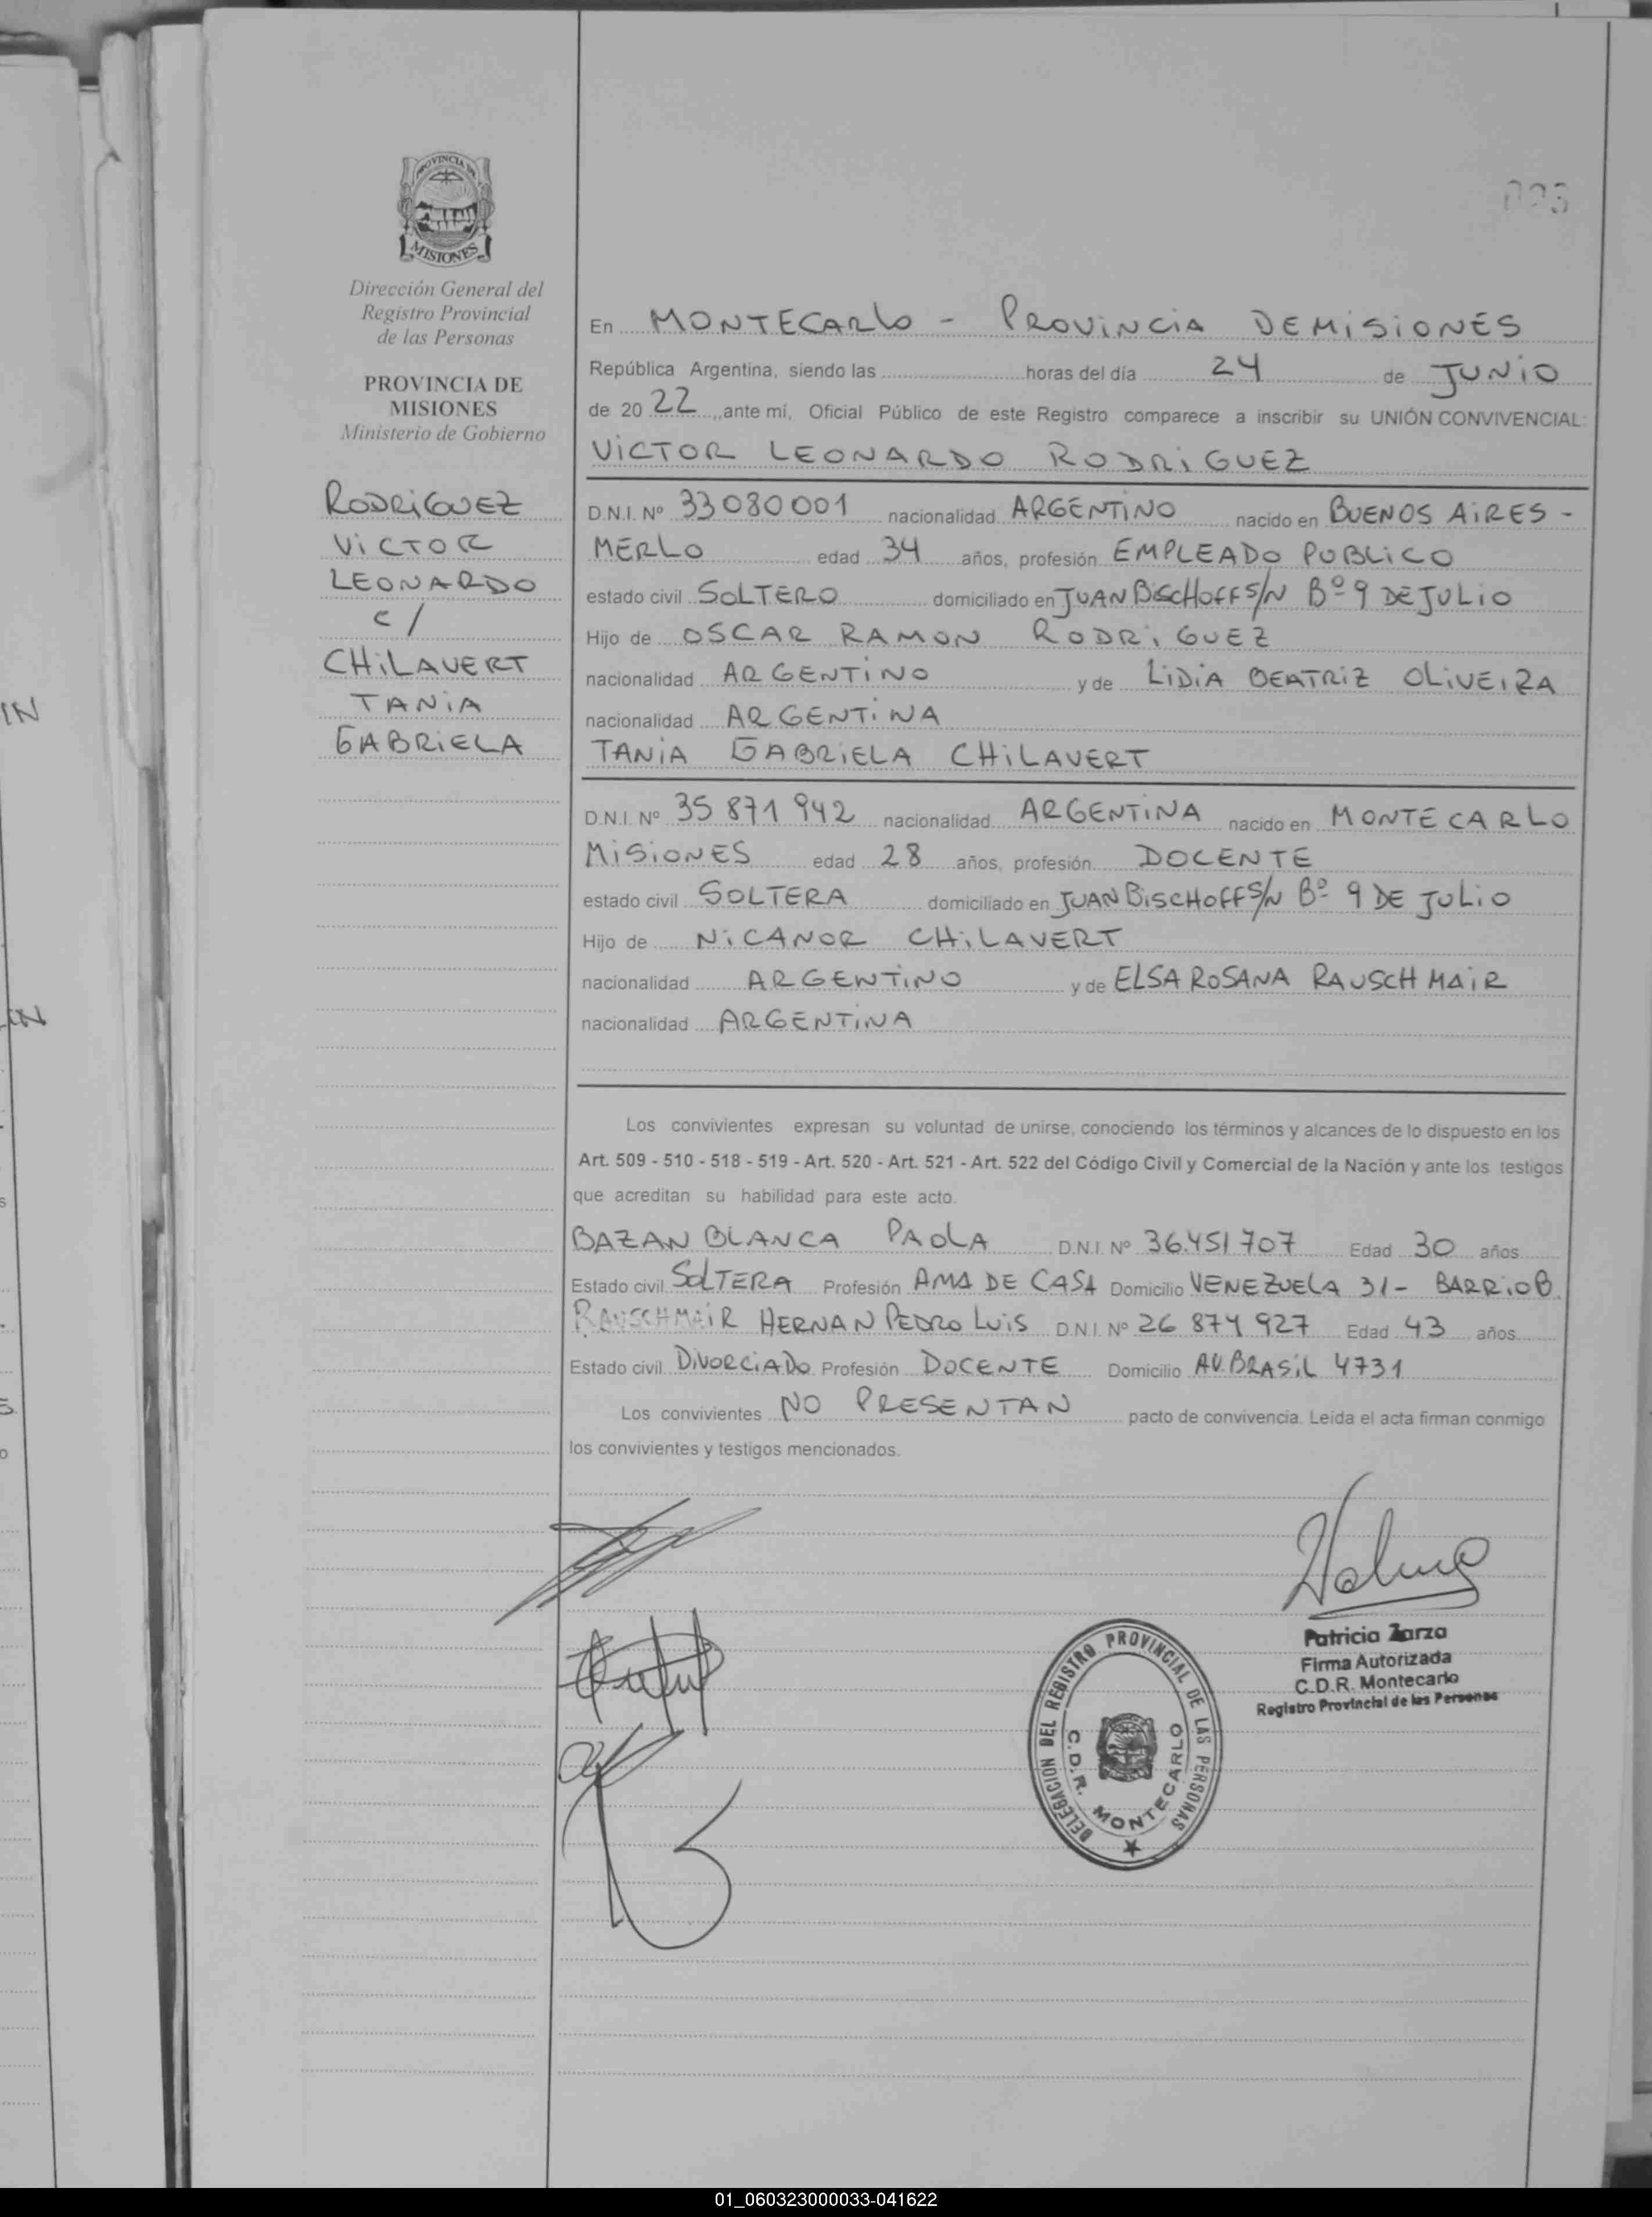 PROVINCIA DE
MISIONES
Dirección General del
Registro Provincial
de las Personas
PROVINCIA DE
MISIONES
Ministerio de Gobierno
RODRiGUEZ
ViCTOR
LEONARDO
c/
CHiLAVERT
TANiA
GABRiELA
023
En MONTECARLO - PROViNCiA DE MiSiONES
República Argentina, siendo las horas del día 24 de JUNiO
de 20 22 ,ante mí, Oficial Público de este Registro comparece a inscribir su UNIÓN CONVIVENCIAL:
ViCTOR LEONARDO RODRiGUEZ
D.N.I. Nº 33080001 nacionalidad ARGENTiNO nacido en BUENOS AiRES -
MERLO edad 34 años, profesión EMPLEADO PUBLiCO
estado civil SOLTERO domiciliado en JUAN BiSCHOFF S/N Bº 9 DE JULiO
Hijo de OSCAR RAMON RODRiGUEZ
nacionalidad ARGENTiNO y de LiDiA BEATRiZ OLiVEIRA
nacionalidad ARGENTiNA
TANiA GABRiELA CHiLAVERT
D.N.I. Nº 35 871 942 nacionalidad ARGENTiNA nacido en MONTECARLO
MiSiONES edad 28 años, profesión DOCENTE
estado civil SOLTERA domiciliado en JUAN BiSCHOFF S/N Bº 9 DE JULiO
Hijo de NiCANOR CHiLAVERT
nacionalidad ARGENTiNO y de ELSA ROSANA RAUSCHMAiR
nacionalidad ARGENTiNA
Los convivientes expresan su voluntad de unirse, conociendo los términos y alcances de lo dispuesto en los
Art. 509 - 510 - 518 - 519 - Art. 520 - Art. 521 - Art. 522 del Código Civil y Comercial de la Nación y ante los testigos
que acreditan su habilidad para este acto.
BAZAN BLANCA PAOLA D.N.I. Nº 36.451 707 Edad 30 años
Estado civil SOLTERA Profesión AMA DE CASA Domicilio VENEZUELA 31- BARRiO B.
RAUSCHMAiR HERNAN PEDRO LUiS D.N.I. Nº 26 874 927 Edad 43 años
Estado civil DiVORCiADO Profesión DOCENTE Domicilio AV. BRASiL 4731
Los convivientes NO PRESENTAN pacto de convivencia. Leída el acta firman conmigo
los convivientes y testigos mencionados.
Patricia Zarza
Firma Autorizada
C.D.R. Montecarlo
Registro Provincial de las Personas
DELEGACION DEL REGISTRO PROVINCIAL DE LAS PERSONAS
C.D.R. MONTECARLO
01_060323000033-041622